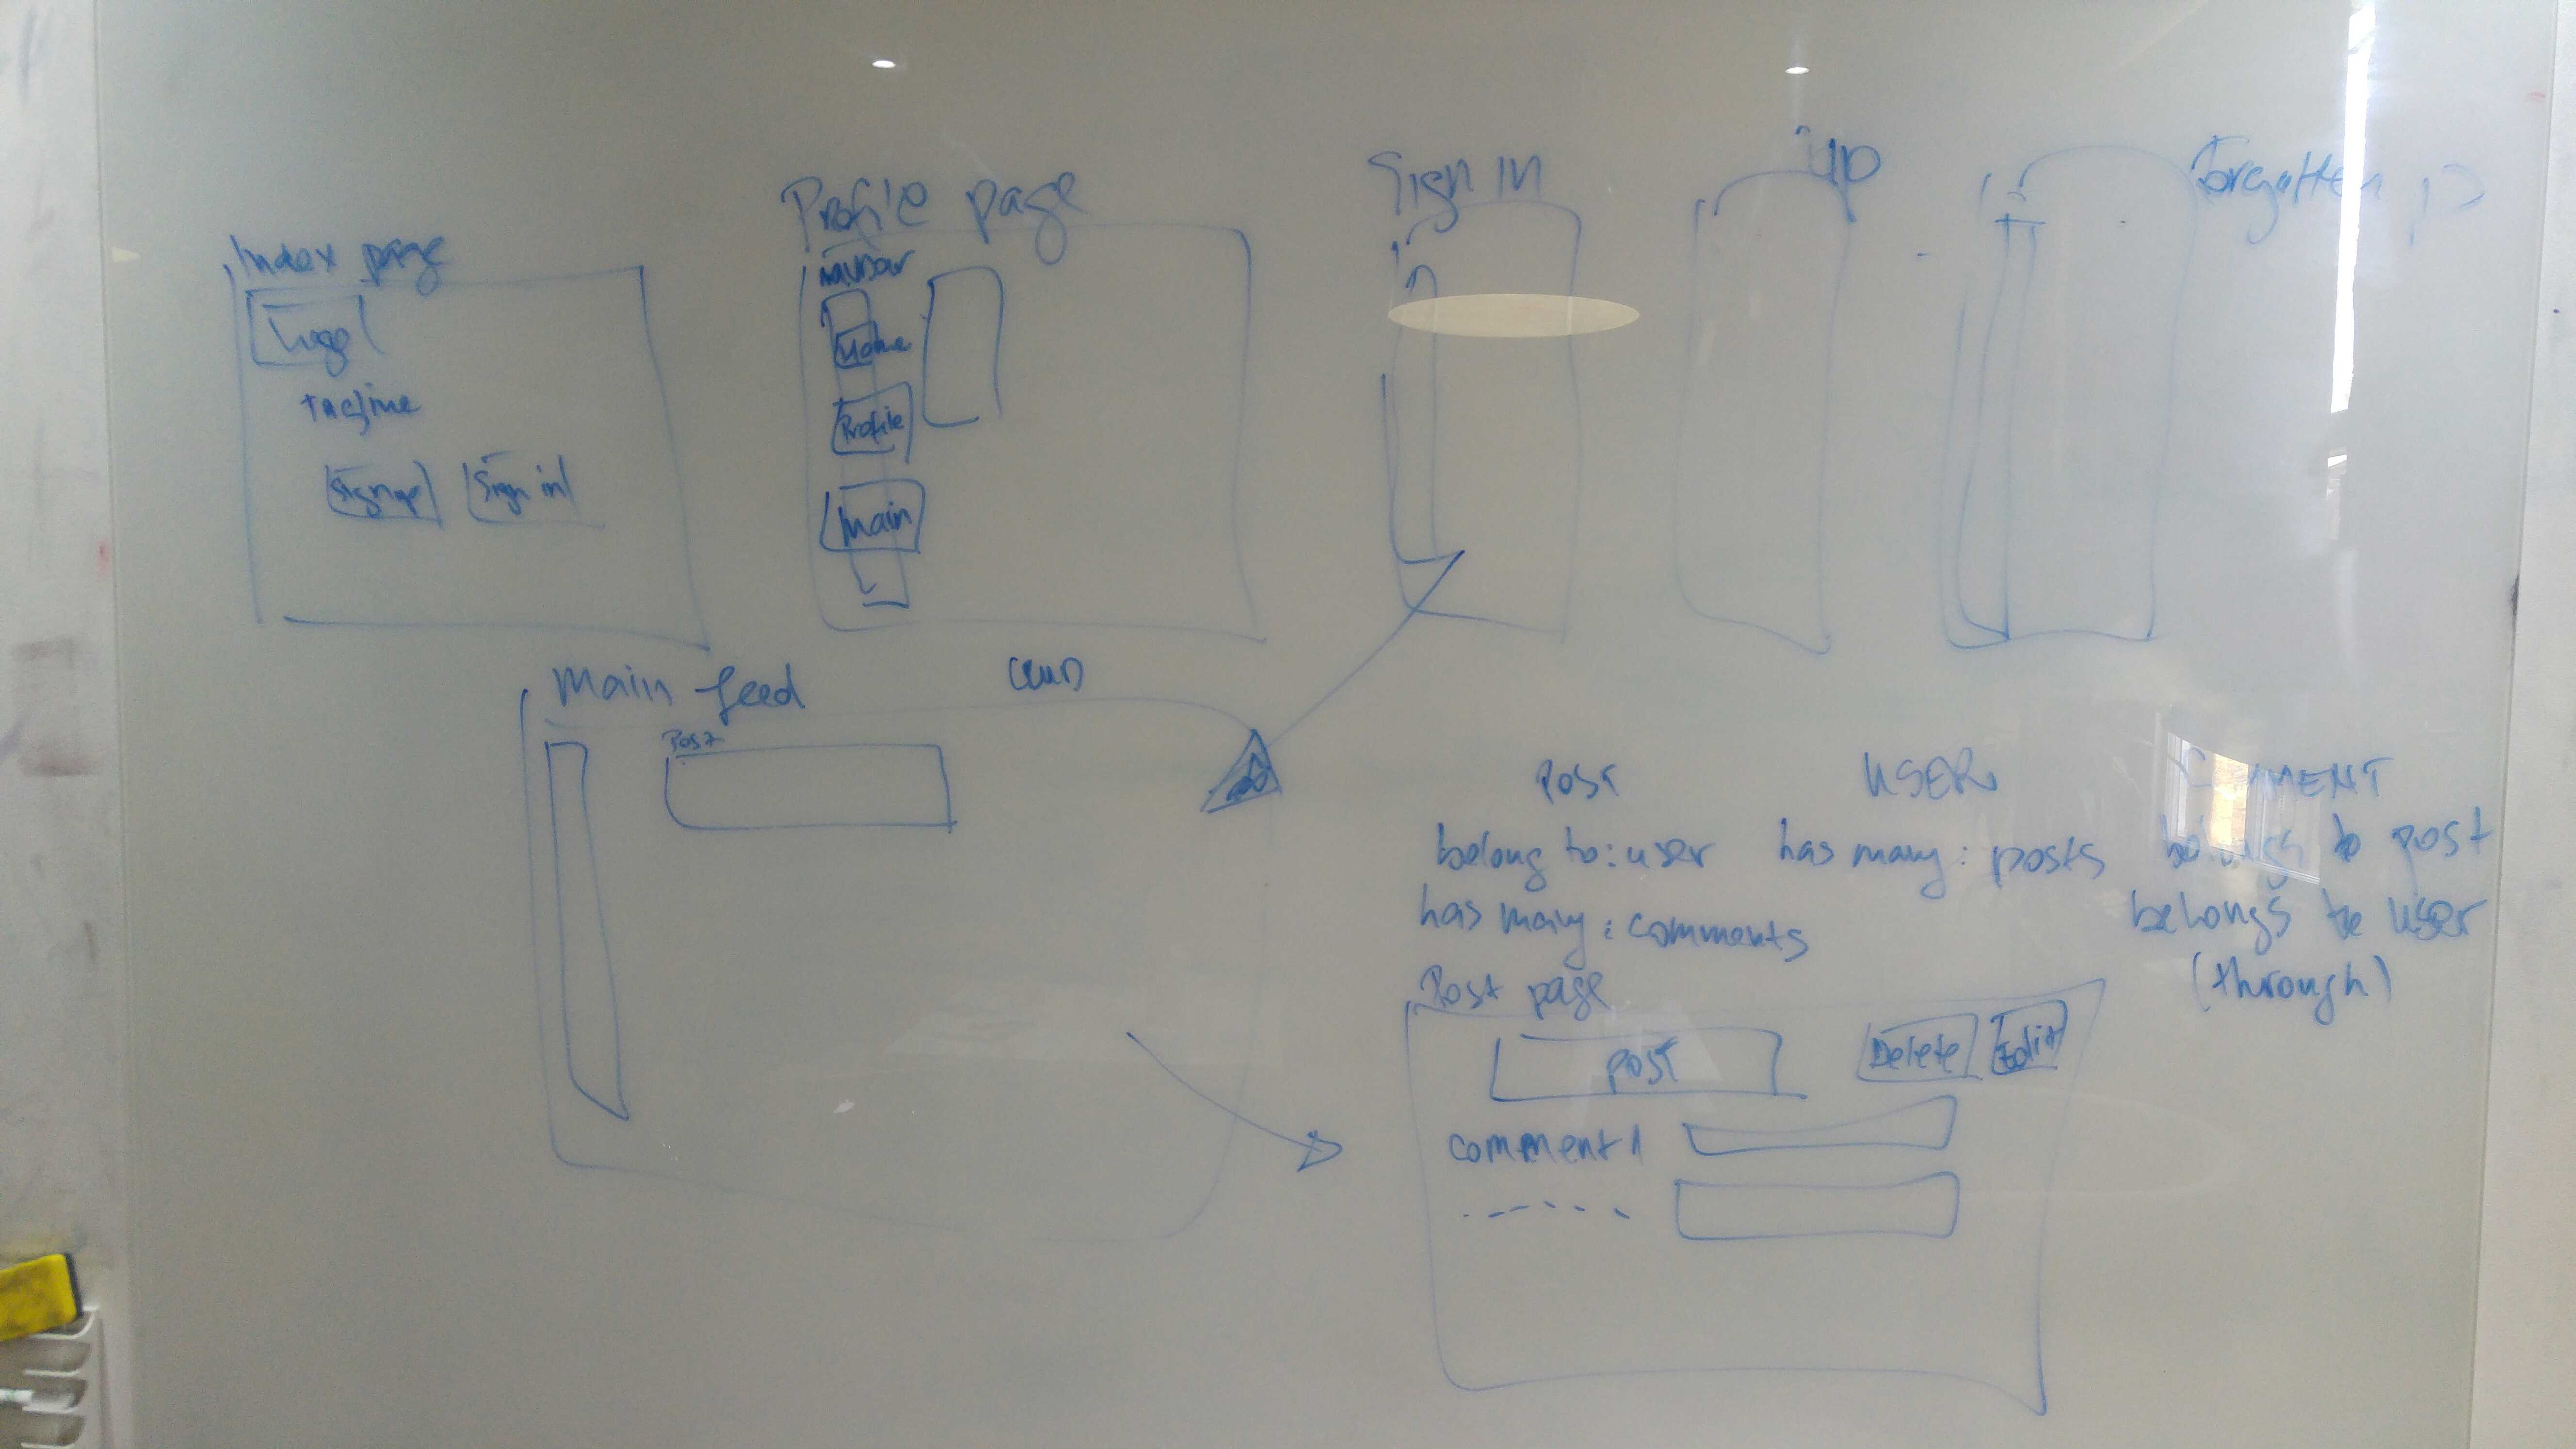 Index page
Logo
tagline
Signup
Sign in
Profile page
navbar
Home
Profile
Main
Sign in
up
Forgotten
Main feed
Post
POST
belong to: user
has many: comments
USER
has many: posts
COMMENT
belongs to post
belongs to user
(through)
Post page
POST
Delete
Edit
comment 1